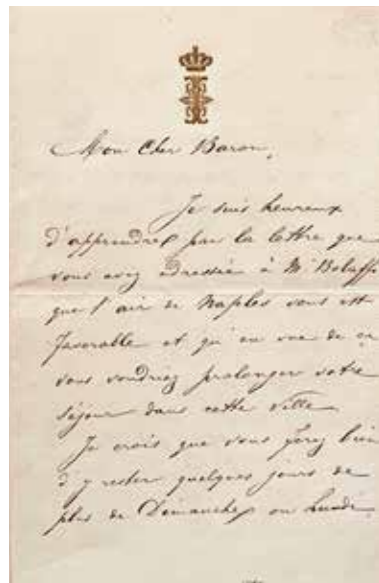 Mon Cher Baron,
Je suis heureux
d'apprendre par la lettre que
vous avez adressée à Mr Bolaffo
que l'air de Naples vous est
favorable et qu'en vue de ça
vous voudriez prolonger votre
séjour dans cette ville
Je crois que vous ferez bien
d'y rester quelques jours de
plus de Dimanche ou Lundi